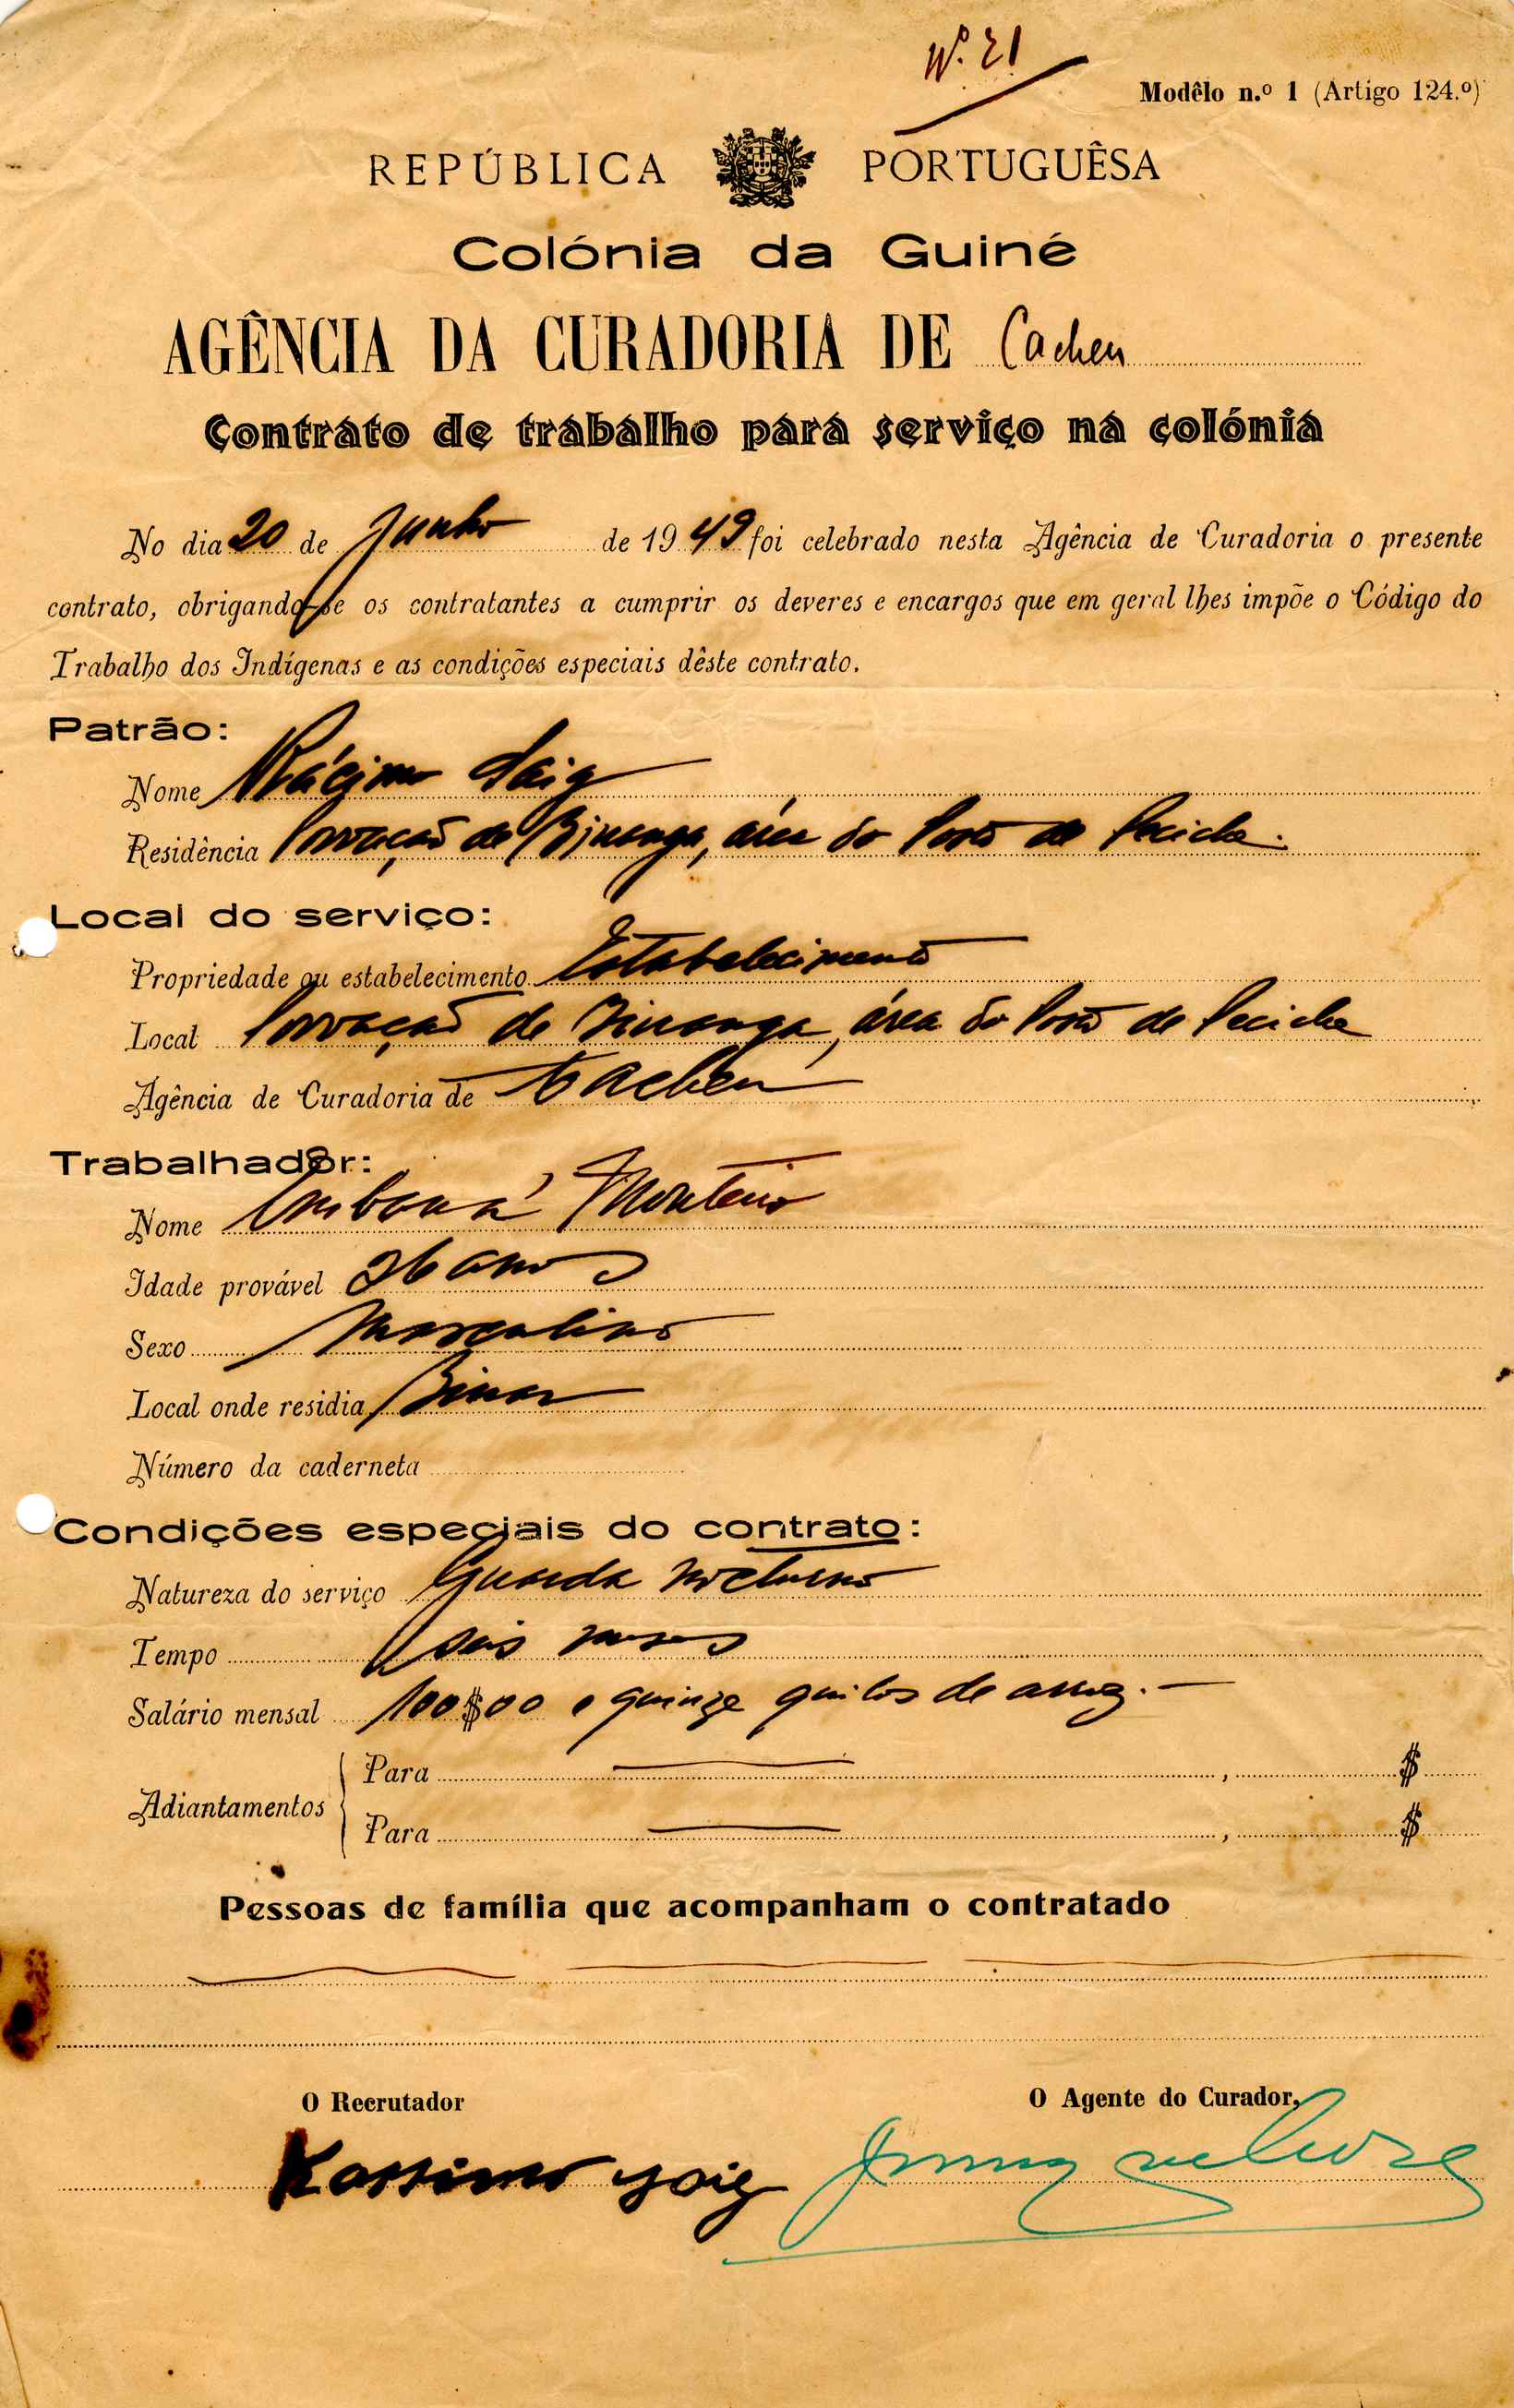 Nº. 21
Modêlo n.º 1 (Artigo 124.º)
REPÚBLICA PORTUGUÊSA
Colónia da Guiné
AGÊNCIA DA CURADORIA DE Cacheu
Contrato de trabalho para serviço na colónia
No dia 20 de Junho de 1949 foi celebrado nesta Agência de Curadoria o presente
contrato, obrigando-se os contratantes a cumprir os deveres e encargos que em geral lhes impõe o Código do
Trabalho dos Indígenas e as condições especiais dêste contrato.
Patrão:
Nome Saig
Residência Povoação de Binanga, área do Posto de Pecixe.
Local do serviço:
Propriedade ou estabelecimento Estabelecimento
Local Povoação de Binanga, área do Posto de Pecixe
Agência de Curadoria de Cacheu
Trabalhador:
Nome Monteiro
Idade provável 26 anos
Sexo Masculino
Local onde residia
Número da caderneta
Condições especiais do contrato:
Natureza do serviço Guarda nocturno
Tempo seis meses
Salário mensal 100$00 e quinze quilos de arroz.
Adiantamentos
Para , $
Para , $
Pessoas de família que acompanham o contratado
O Recrutador
O Agente do Curador,
Kassimo Saig